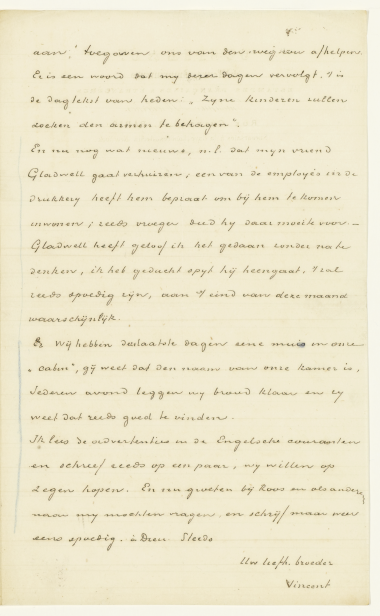 aan toegeven ons van den weg zou afhelpen
Er is een woord dat my dezer dagen vervolgt. 't is
de dagtekst van heden: „Zyne kinderen zullen
zoeken den armen te behagen".
En nu nog wat nieuws, n.l. dat myn vriend
Gladwell gaat verhuizen; een van de employés in de
drukkery heeft hem bepraat om bij hem te komen
inwonen; reeds vroeger deed hy daar moeite voor –
Gladwell heeft geloof ik het gedaan zonder na te
denken, ik heb geducht spyt hij heengaat, 't zal
reeds spoedig zyn, aan 't eind van deze maand
waarschijnlijk.
Wij hebben de laatste dagen eene muis in onze
„cabin", gij weet dat den naam van onze kamer is,
Iederen avond leggen wy brood klaar en zy
weet dat reeds goed te vinden.
Ik lees de advertenties in de Engelsche couranten
en schreef reeds op een paar, wy willen op
Zegen hopen. En nu groeten bij Roos en als anderen
naar my mochten vragen en schrijf maar weer
eens spoedig. à Dieu. Steeds
Uw liefh. broeder
Vincent